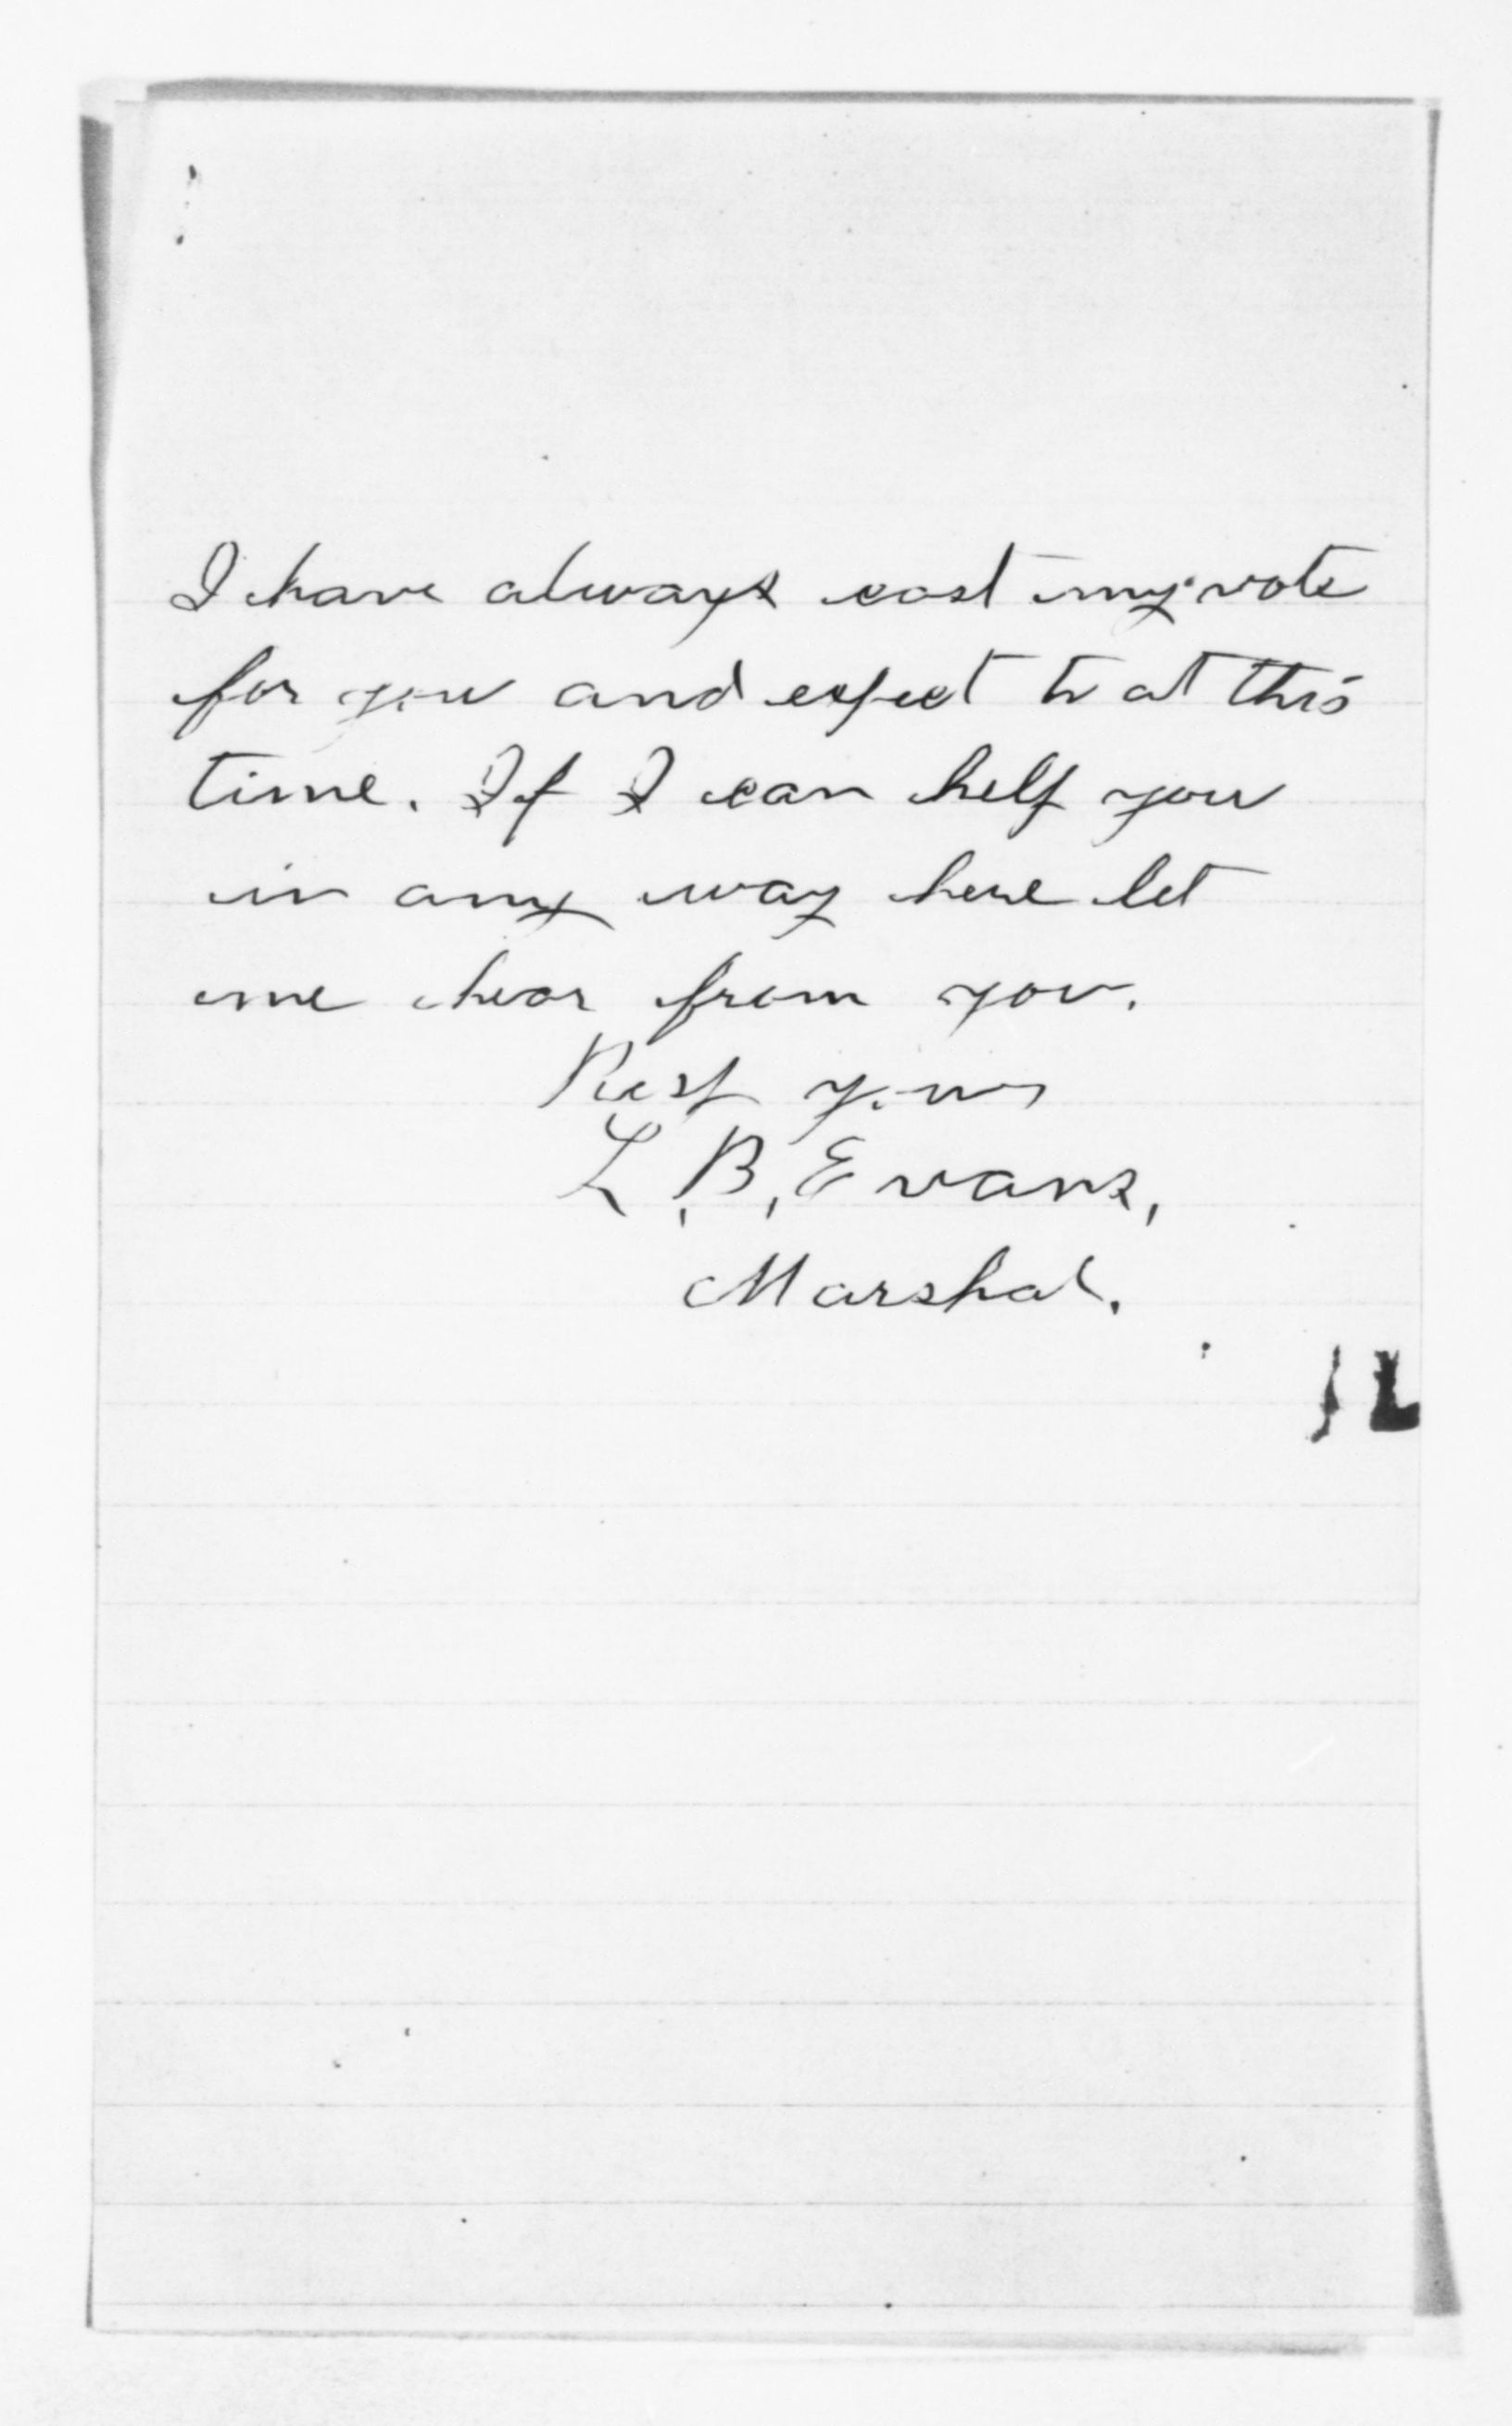 I have always cast my vote
for you and expect to at this
time. If I can help you
in any way here let
me hear from you.
Resp yours
L. B. Evans,
Marshal.